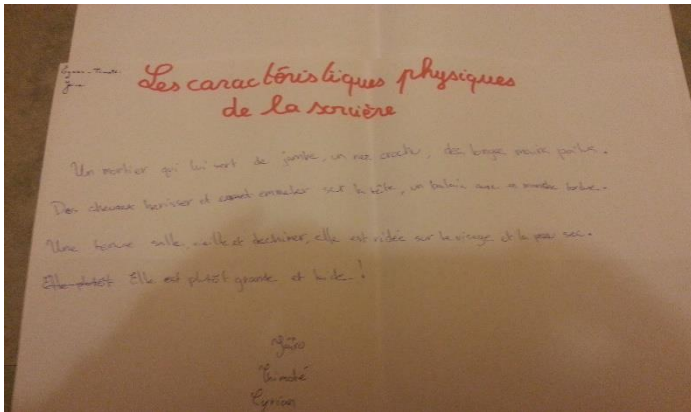 Les caractéristiques physiques
de la sorcière
Un mortier qui lui sert de jambe, un nez crochu, des longue mains poilue.
Des cheveux herisser et emmeler sur la tête, un balaie avec manche tordue.
Une tenue salle, vielle et dechirer, elle est ridée sur le visage et la peau sec.
Elle plutôt Elle est plutôt grande et laide!
Timoté
Cyrian